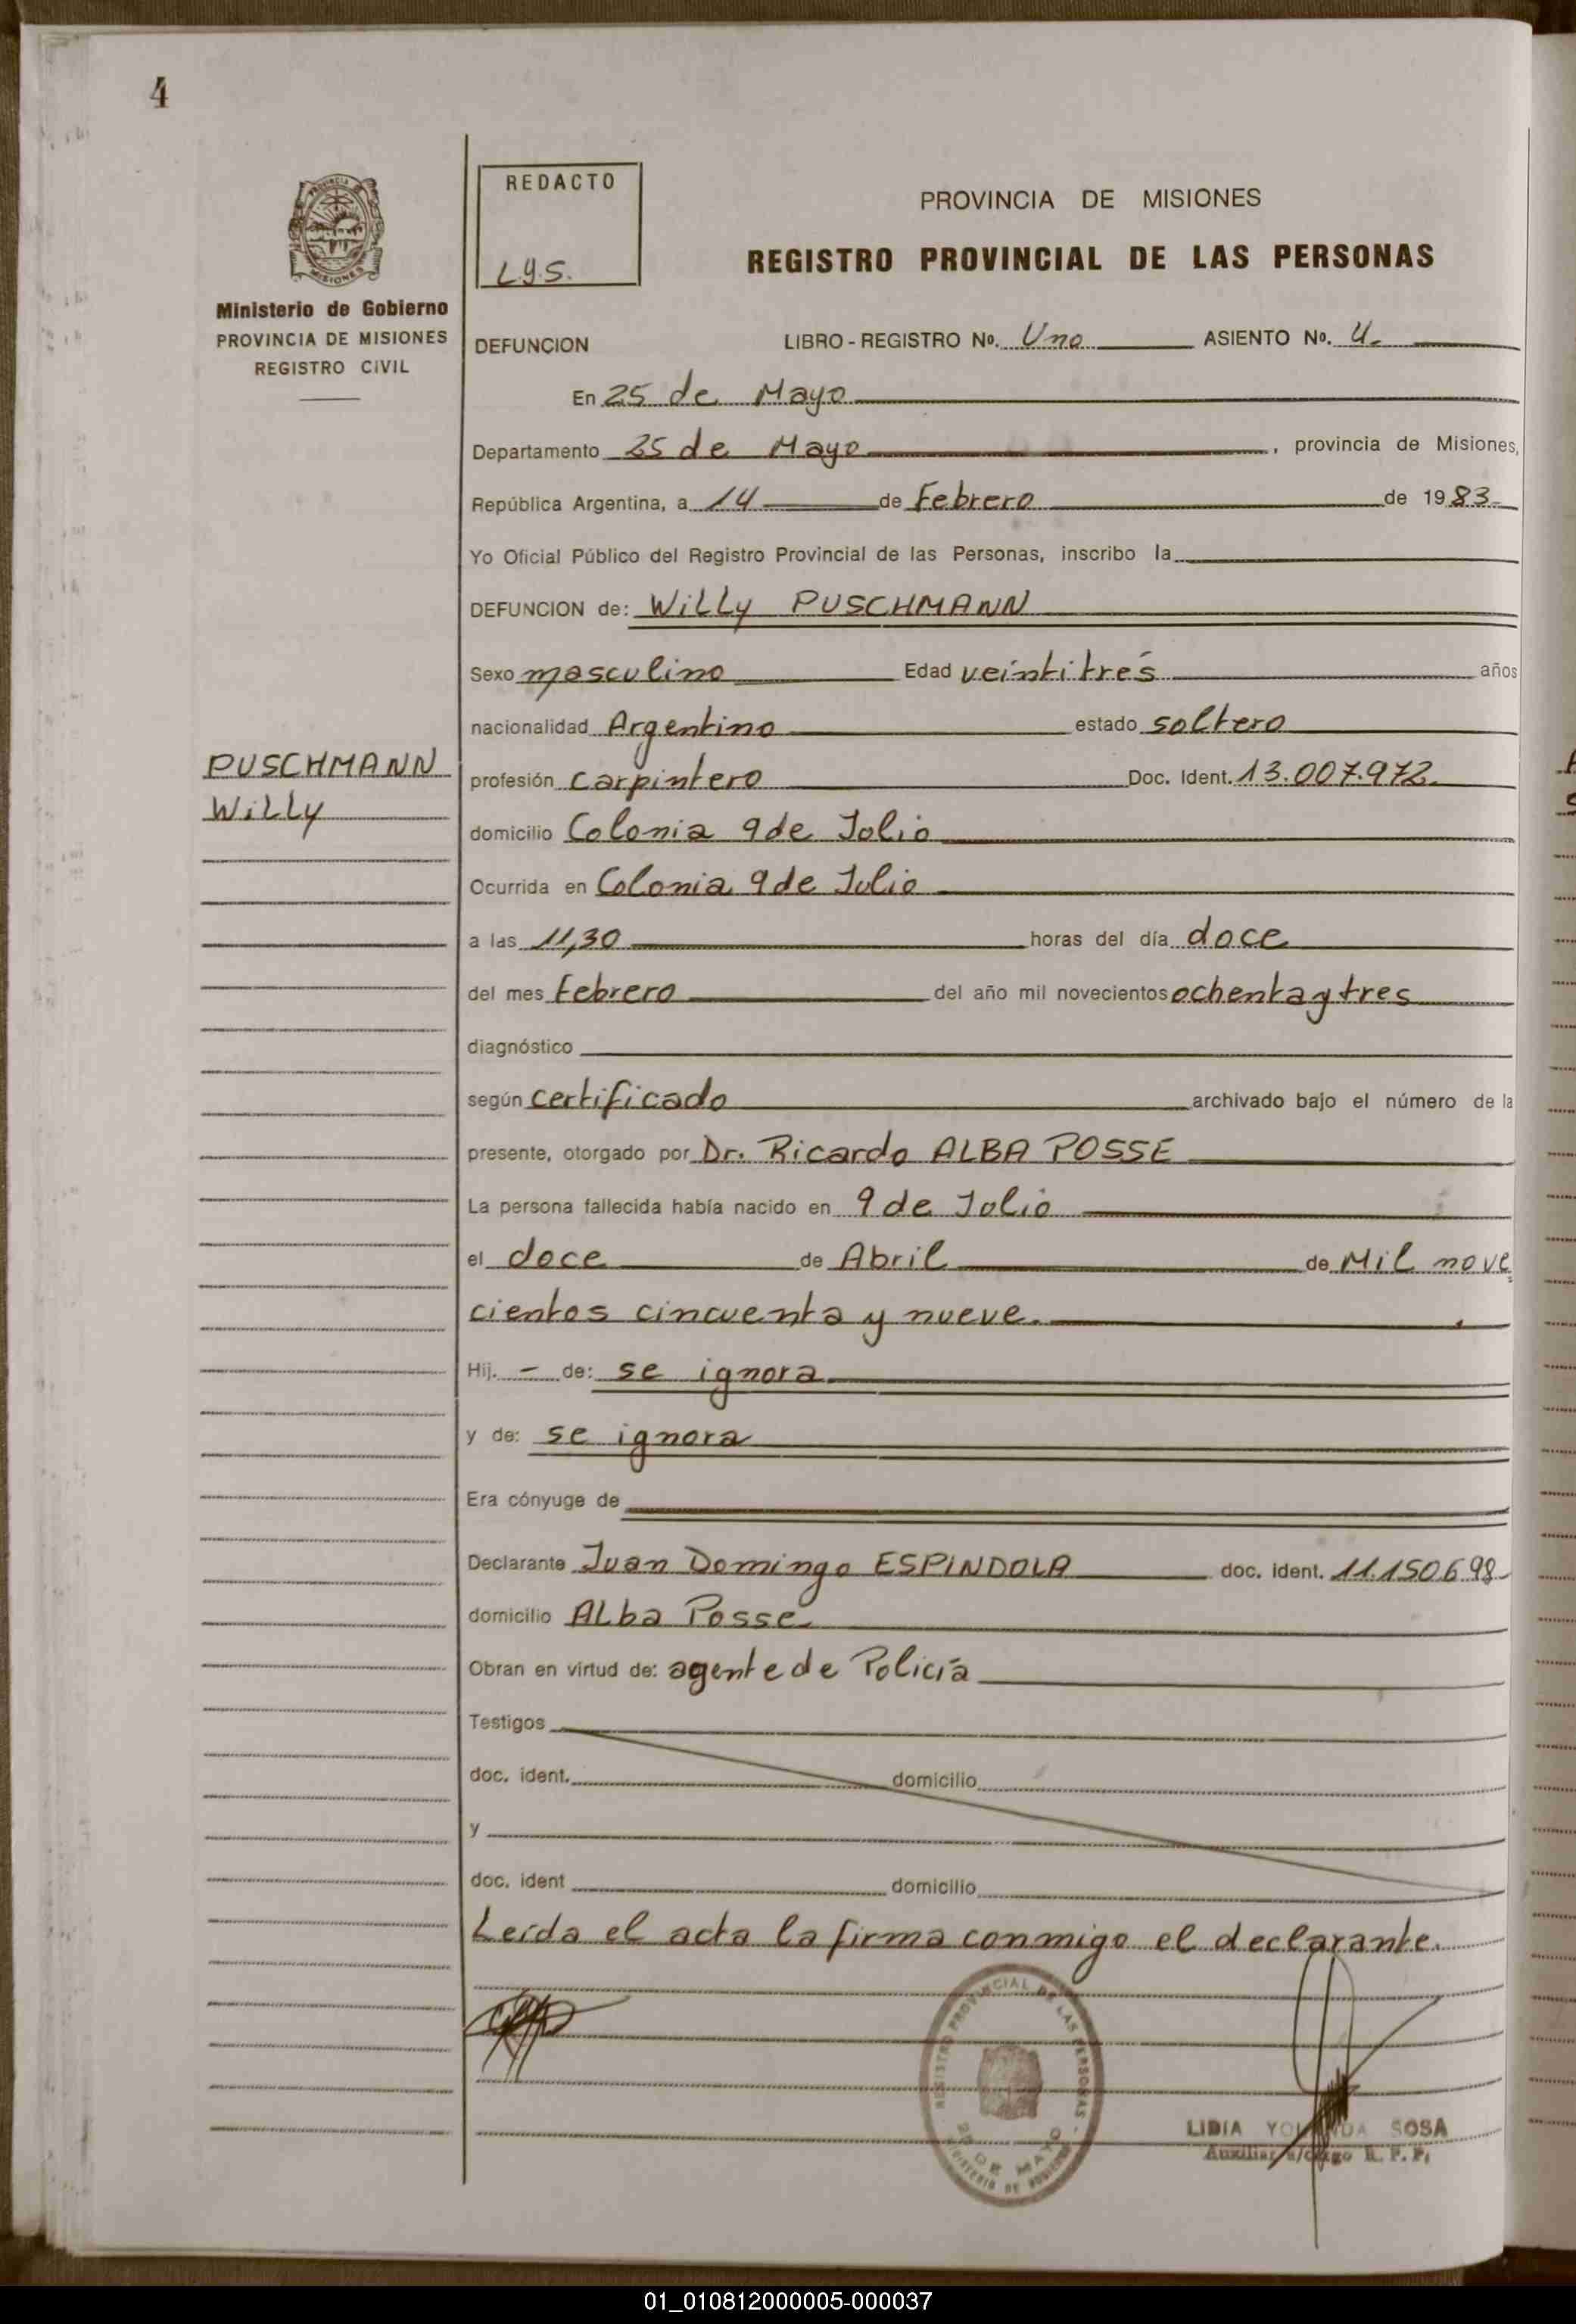 4
REDACTO
L.Y.S.
PROVINCIA DE MISIONES
REGISTRO PROVINCIAL DE LAS PERSONAS
Ministerio de Gobierno
PROVINCIA DE MISIONES
REGISTRO CIVIL
DEFUNCION LIBRO - REGISTRO No. Uno ASIENTO No. 4.
En 25 de Mayo
Departamento 25 de Mayo, provincia de Misiones,
República Argentina, a 14 de Febrero de 1983-
Yo Oficial Público del Registro Provincial de las Personas, inscribo la
DEFUNCION de: Willy PUSCHMANN
Sexo masculino Edad veintitrés años
nacionalidad Argentino estado soltero
PUSCHMANN
Willy
profesión carpintero Doc. Ident. 13.007.972.
domicilio Colonia 9 de Jolio
Ocurrida en Colonia 9 de Julio
a las 11,30 horas del día doce
del mes Febrero del año mil novecientos ochenta y tres
diagnóstico
según certificado archivado bajo el número de la
presente, otorgado por Dr. Ricardo ALBA POSSE
La persona fallecida había nacido en 9 de Jolio
el doce de Abril de Mil nove
cientos cincuenta y nueve.
Hij. - de: se ignora
y de: se ignora
Era cónyuge de
Declarante Juan Domingo ESPINDOLA doc. ident. 11.150.698-
domicilio Alba Posse
Obran en virtud de: agente de Policía
Testigos
doc. ident. domicilio
y
doc. ident domicilio
Leída el acta la firma conmigo el declarante.
REGISTRO PROVINCIAL DE LAS PERSONAS
25 DE MAYO
MINISTERIO DE GOBIERNO
LIDIA YOLANDA SOSA
Auxiliar a/cargo R. P. P.
01_010812000005-000037